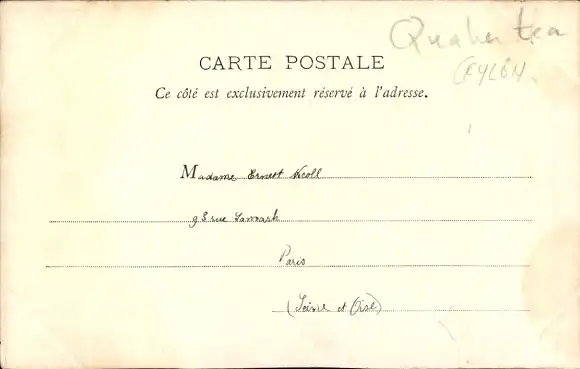 Quaker tea
CEYLON.
CARTE POSTALE
Ce côté est exclusivement réservé à l'adresse.
Madame Ernest Nicoll
93 rue Lamark
Paris
(Seine et Oise)